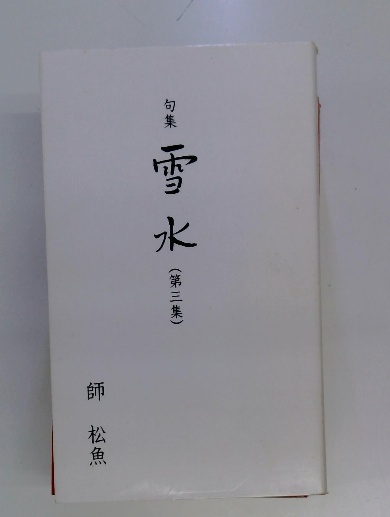 句集
雪水
(第三集)
師 松魚